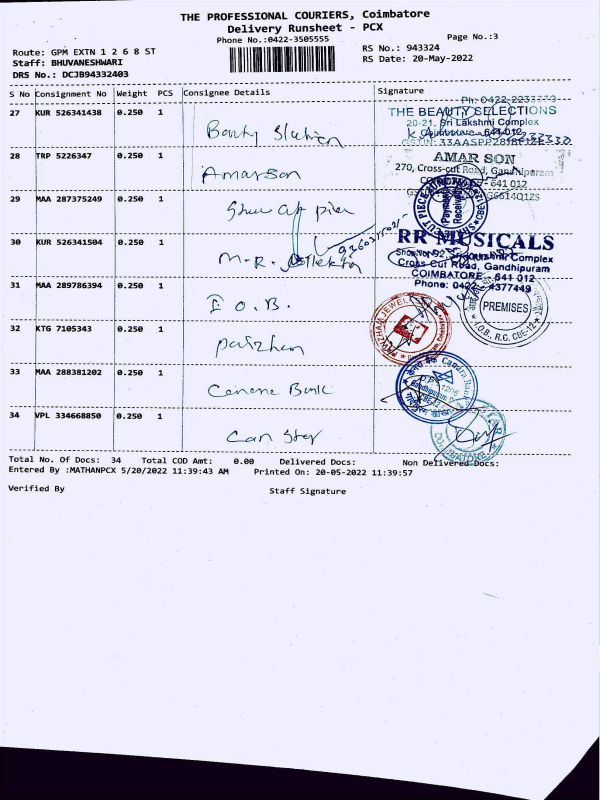 THE PROFESSIONAL COURIERS, Coimbatore
Delivery Runsheet - PCX
Phone No.:0422-3505555
Page No.:3
Route: GPM EXTN 1 2 6 8 ST
Staff: BHUVANESHWARI
DRS No.: DCJB94332403
RS No.: 943324
RS Date: 20-May-2022
S No Consignment No Weight PCS Consignee Details Signature
27 KUR 526341438 0.250 1 Beauty Station
Ph: 0422-2233330
THE BEAUTY SELECTIONS
20-21, Sri Lakshmi Complex
Coimbatore - 641 012
28 TRP 5226347 0.250 1 Amarson
AMAR SON
270, Cross-cut Road, Gandhipuram
641 012
29 MAA 287375249 0.250 1
30 KUR 526341504 0.250 1 M.R.
RR MUSICALS
Complex
Cross Cut Road, Gandhipuram
COIMBATORE - 641 012
Phone: 0422 - 4377449
31 MAA 289786394 0.250 1 I O.B.
PREMISES
I.O.B., R.C. CBE-12
32 KTG 7105343 0.250 1 Pazhan
33 MAA 288381202 0.250 1 Canara Bank
Canara Bank
34 VPL 334668850 0.250 1 Can Star
Total No. Of Docs: 34 Total COD Amt: 0.00 Delivered Docs: Non Delivered Docs:
Entered By :MATHANPCX 5/20/2022 11:39:43 AM Printed On: 20-05-2022 11:39:57
Verified By Staff Signature